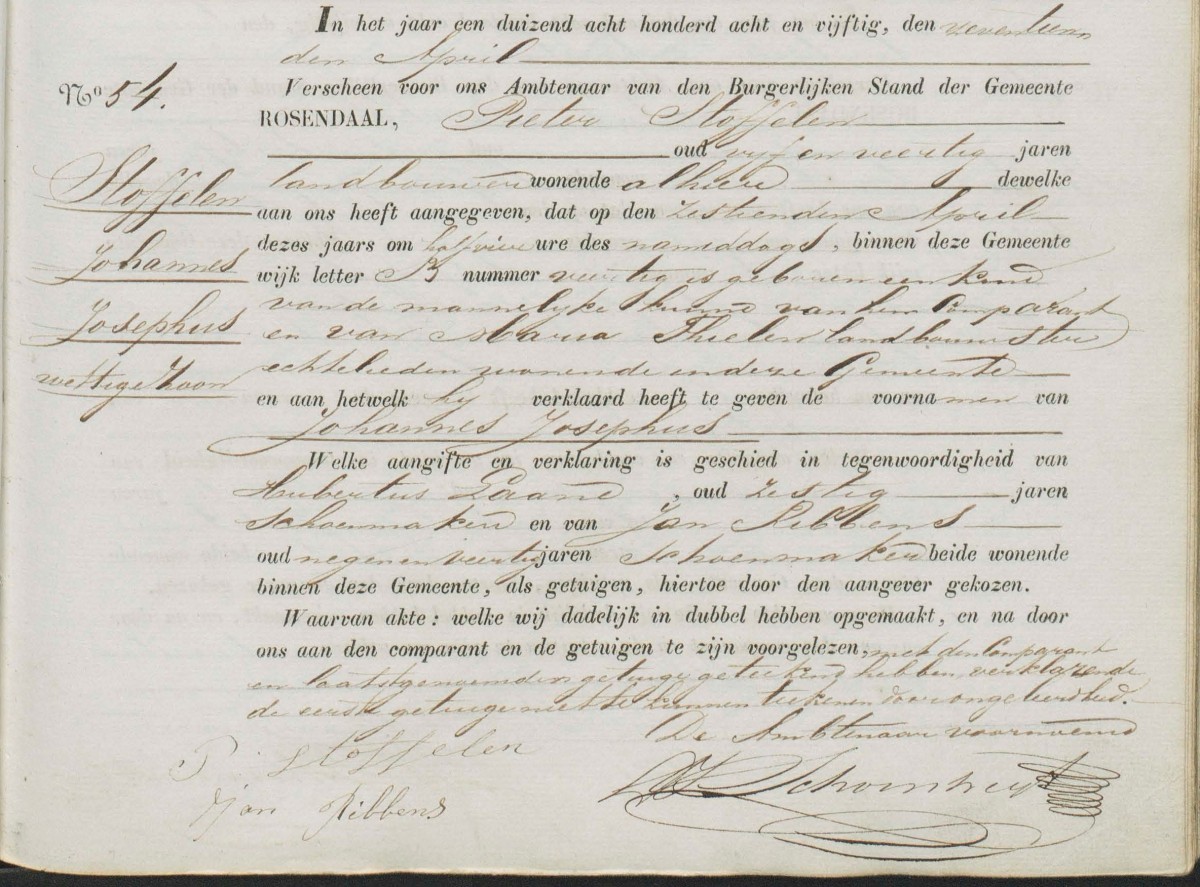 In het jaar een duizend acht honderd acht en vijftig, den zeventien
den April
No 54.
Verscheen voor ons Ambtenaar van den Burgerlijken Stand der Gemeente
ROSENDAAL, Pieter Stoffelen
oud vijf en veertig jaren
landbouwer wonende alhier dewelke
Stoffelen
Johannes
Josephus
wettige Zoon
aan ons heeft aangegeven, dat op den zestienden April
dezes jaars om half vier ure des namiddags, binnen deze Gemeente
wijk letter B nummer veertig is geboren een kind
van de mannelijke kunne van hem Comparant
en van Maria Thielen landbouwster
echtelieden wonende in deze Gemeente
en aan hetwelk hij verklaard heeft te geven de voornamen van
Johannes Josephus
Welke aangifte en verklaring is geschied in tegenwoordigheid van
Hubertus, oud zestig jaren
Schoenmaker en van Jan Ribbens
oud negen en veertig jaren Schoenmaker beide wonende
binnen deze Gemeente, als getuigen, hiertoe door den aangever gekozen.
Waarvan akte: welke wij dadelijk in dubbel hebben opgemaakt, en na door
ons aan den comparant en de getuigen te zijn voorgelezen, met den Comparant
en laatstgenoemden getuige geteekend hebben, verklarende
de eerste getuige niet te kunnen teekenen door ongeleerdheid.
De Ambtenaar voornoemd
P. Stoffelen
Jan Ribbens